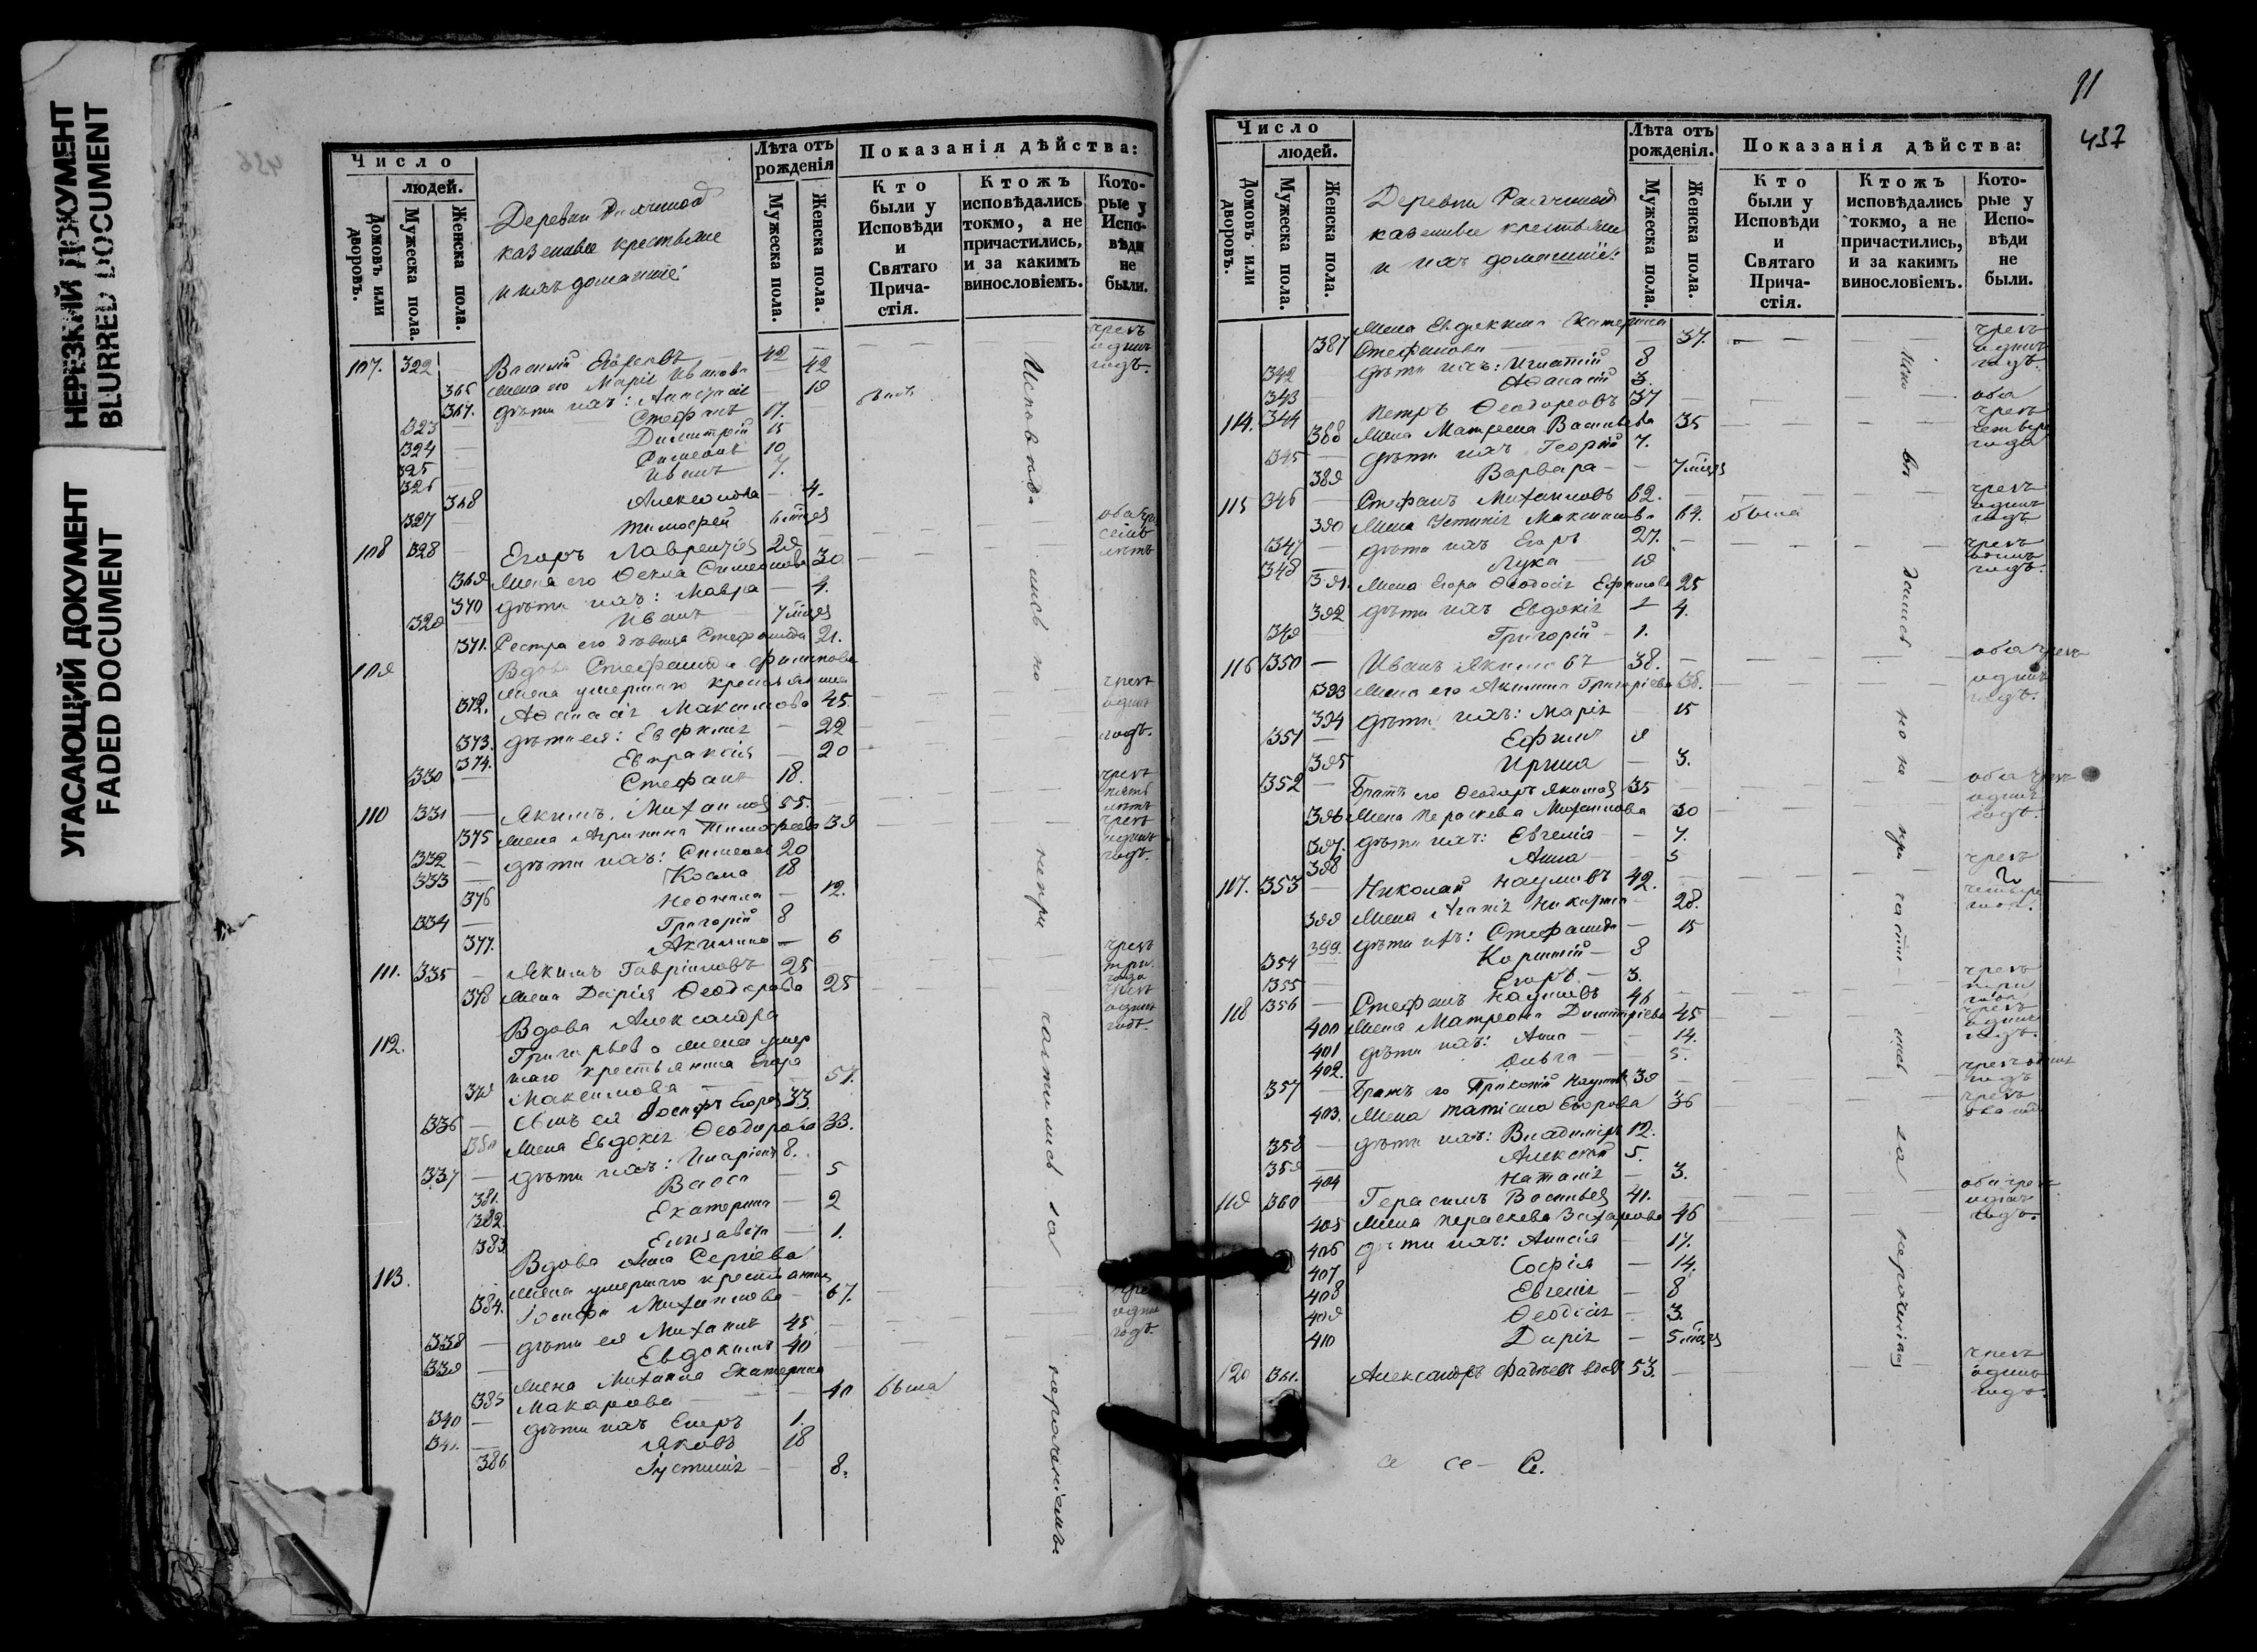 НЕРЕЗКИЙ ДОКУМЕНТ
BLURRED DOCUMENT
УГАСАЮЩИЙ ДОКУМЕНТ
FADED DOCUMENT
Число
людей.
Домовъ или дворовъ.
Мужеска пола.
Женска пола.
Деревни
казенные крестьяне
и ихъ домашніе
Лѣта отъ рожденія
Мужеска пола.
Женска пола.
Показанія дѣйства:
Кто были у Исповѣди и Святаго Причастія.
Ктожъ исповѣдались токмо, а не причастились, и за какимъ винословіемъ.
Которые у Исповѣди не были.
107. 322 Василій Егоровъ 42 — чрезъ одинъ годъ.
366 жена его Марія Иванова 42
367. дѣти ихъ: Анастасія 18
323 Стефанъ 17.
324 Димитрій 15
325 Симеонъ 10
326 Иванъ 7.
368 4.
327 Тимофей 6 мцев
108 328 Егоръ Лаврентіев 28 оба чрез семь лѣтъ
369 жена его Ѳекла Симеонова 30
370 дѣти ихъ: Мавра — 4.
329 Иванъ 7 мцев
371. Сестра его дѣвица Стефанида 21.
109 Вдова Стефанида Филипова
жена умершаго крестьянина
372. Аѳанасія Максимова 45. чрезъ одинъ годъ.
373. дѣти ея: Евфимія — 22
374. Евпраксія — 20
330 Стефанъ 18.
110 331 — Якимъ Михаилов 55. чрезъ лѣтъ
375 жена Агрипина Тимофеева 39 чрезъ одинъ годъ.
332 — дѣти ихъ: Симеонъ 20
333 — Косма 18
376 Неонила — 12.
334 — Григорій 8
377. Акилина — 6
111. 335 — Якимъ Гавріиловъ 25 чрезъ три года
378 жена Дарія Ѳеодорова 25 чрезъ одинъ годъ.
112. Вдова Александра
Григорьева жена умер
шаго крестьянина Егора
379 Максимова — 57.
336 — сынъ ея Іосифъ Егоров 33.
380 жена Евдокія Ѳеодорова 33.
337 — дѣти ихъ: Иларіонъ 8.
381. Васса — 5
382. Екатерина — 2
383 Елисавета — 1.
113. Вдова Анна Сергіева
жена умершаго крестьянина
384. Іосифа Михаилова — 67. чрезъ одинъ годъ.
338 — дѣти ея Михаилъ 45
339 — Евдокимъ 40
жена Михаила Екатерина
385 Макарова — 40 была
340 — дѣти ихъ Егоръ 1.
341. — Яковъ 18
386 Іустинія — 8.
Исповѣдались но непричастились за нерачѣніемъ.
11
437
Число
людей.
Домовъ или дворовъ.
Мужеска пола.
Женска пола.
Деревни
казенные крестьяне
и ихъ домашніе:
Лѣта отъ рожденія.
Мужеска пола.
Женска пола.
Показанія дѣйства:
Кто были у Исповѣди и Святаго Причастія.
Ктожъ исповѣдались токмо, а не причастились, и за какимъ винословіемъ.
Которые у Исповѣди не были.
жена Евдокима Екатерина
387 Стефанова — 37. чрезъ одинъ годъ.
342 дѣти ихъ: Игнатій 8
343 Аѳанасій 3.
114. 344 Петръ Ѳеодоровъ 37 оба чрезъ четыре года
388 жена Матрена Васильева 35
345 — дѣти ихъ Георгій 7.
389 Варвара — 7 мцев
115 346 — Стефанъ Михаиловъ 62. чрезъ одинъ годъ
390 жена Устинія Максимова 64. была
347 — дѣти ихъ Егоръ 27. чрезъ одинъ годъ.
348 Лука — 18
391. жена Егора Ѳеодосія Ефимова 25
392 дѣти ихъ Евдокія 4.
349 Григорій — 1.
116 350 — Иванъ Якимовъ — 38. оба чрезъ одинъ годъ.
393 жена его Акилина Григоріева 38.
394 дѣти ихъ: Марія — 15
351 — Ефимъ 9
395 Ирина — 3.
352 — братъ его Ѳеодоръ Якимов 35 оба чрезъ одинъ годъ.
396 жена Параскева Михаилова 30
397. дѣти ихъ: Евгенія — 7.
398 Анна — 5
117. 353 — Николай Наумовъ 42. чрезъ четыре года.
399 жена Агапія — 28.
399. дѣти ихъ: Стефанида — 15
354 — Корнилій — 8
355 — Егоръ — 3.
118 356 — Стефанъ Наумовъ 46 чрезъ три года
400 жена Матрона Димитріева 45 чрезъ одинъ годъ.
401 дѣти ихъ: Анна — 14.
402. Ольга — 5.
357 — братъ его Прокопій Наумов 39 чрезъ одинъ годъ
403. жена Татіана Егорова 36 чрезъ
358 — дѣти ихъ: Владимиръ 12.
359 — Алексѣй 5.
404 Наталія — 3.
119 360 Герасимъ Васильев 41. оба чрезъ одинъ годъ.
405 жена Параскева Захарова 46
406 дѣти ихъ: Анисія — 17.
407 Софія — 14.
408 Евгенія — 8
409 Ѳеодосія — 3.
410 Дарія — 5 мцев
120 361. Александръ Фадѣев вдов 53. чрезъ одинъ годъ.